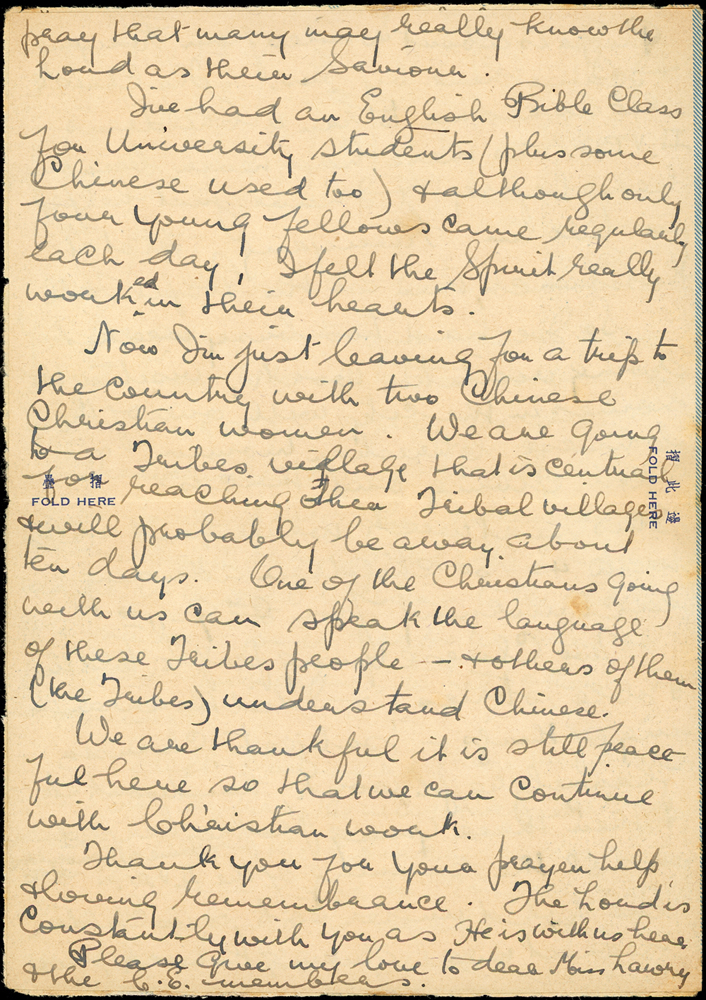 pray that many may really know the
Lord as their Saviour.
I've had an English Bible Class
for University students (plus some
Chinese used too) & although only
four young fellows came regularly
each day, I felt the Spirit really
worked in their hearts.
Now I'm just leaving for a trip to
the country with two Chinese
Christian women. We are going
to a Tribes village that is central
for reaching other Tribal villages
& will probably be away about
ten days. One of the Christians going
with us can speak the language
of these Tribes people — & others of them
(the Tribes) understand Chinese.
We are thankful it is still peace
ful here so that we can continue
with Christian work.
Thank you for your prayer help
& loving remembrance. The Lord is
constantly with you as He is with us here
Please give my love to dear Miss Lawry
& the C.E. members.
FOLD HERE
摺此邊
FOLD HERE